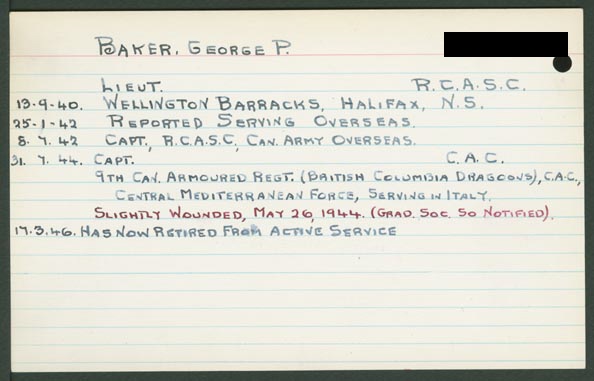 BAKER, GEORGE P.
LIEUT. R.C.A.S.C.
13-9-40. WELLINGTON BARRACKS, HALIFAX, N.S.
25-1-42 REPORTED SERVING OVERSEAS.
8. 7. 42 CAPT., R.C.A.S.C, CAN. ARMY OVERSEAS.
31. 7. 44. CAPT. C.A.C.
9TH CAN. ARMOURED REGT. (BRITISH COLUMBIA DRAGOONS), C.A.C.,
CENTRAL MEDITERRANEAN FORCE, SERVING IN ITALY.
SLIGHTLY WOUNDED, MAY 26, 1944. (GRAD. SOC. SO NOTIFIED).
17.3.46. HAS NOW RETIRED FROM ACTIVE SERVICE